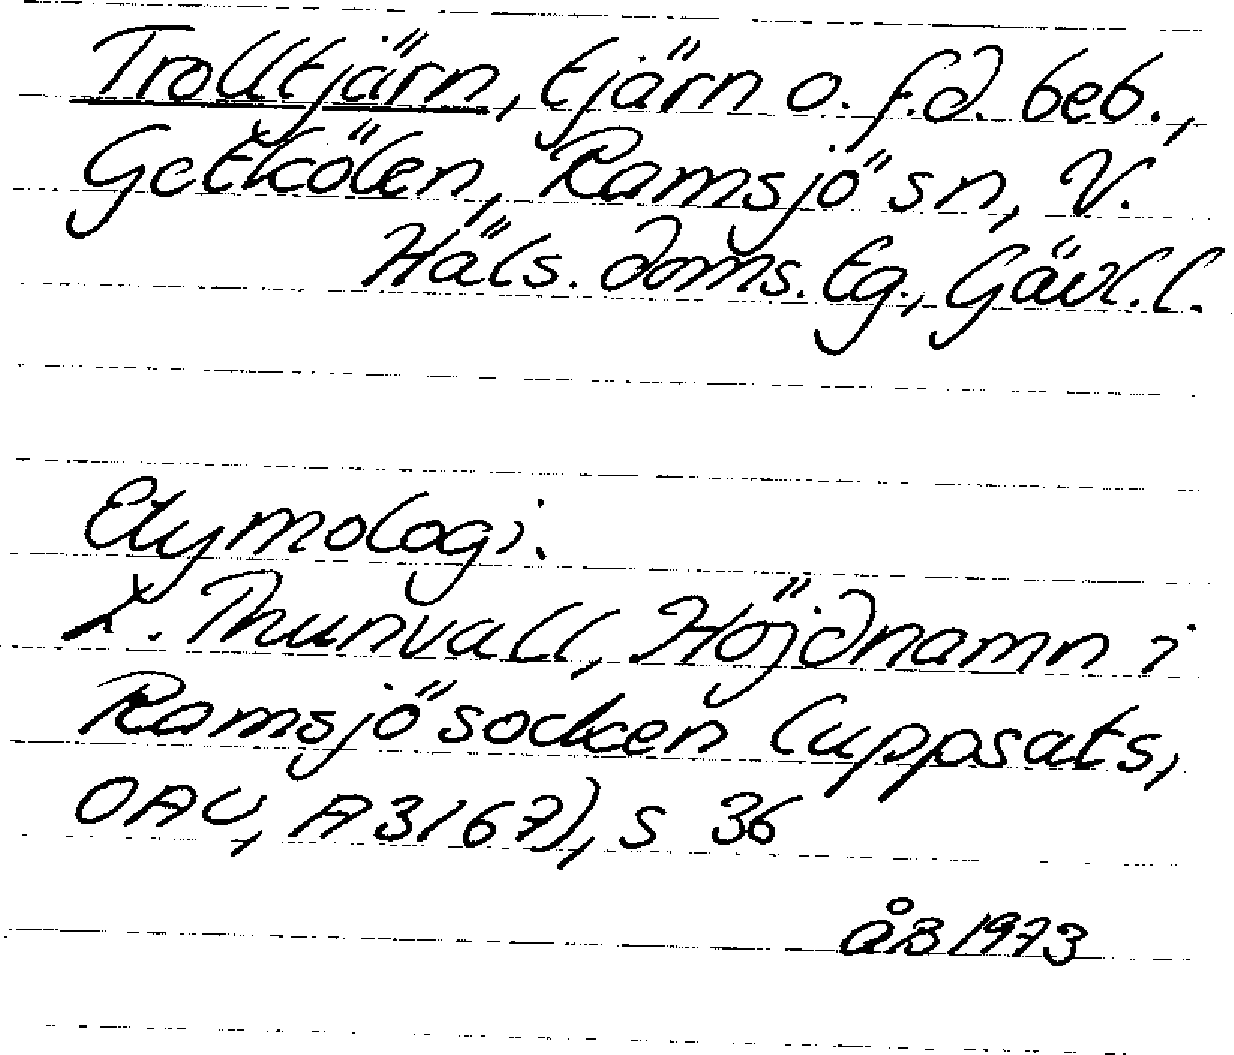 Trolltjärn, tjärn o. f.d. beb.,
Getkölen, Ramsjö sn, V.
Häls. doms. tg., Gävl. l.
Etymologi.
L. Thunvall, Höjdnamn i
Ramsjö socken (uppsats,
OAU, A 3167), s 36
åB 1973